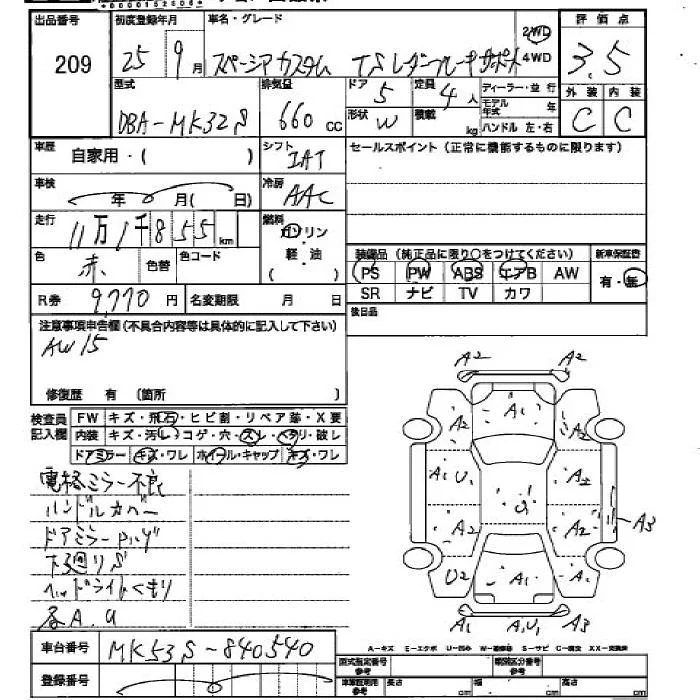 出品番号 初度登録年月 車名・グレード 2WD 評価点
209 25 9月 スペーシアカスタム TS レーダーブレーキサポート 4WD 3.5
型式 排気量 ドア 定員 ディーラー・並行 外装 内装
DBA-MK32S 660cc 5 4人 モデル年式 年 C C
形状 W 積載 kg ハンドル 左・右
車歴 自家用・( ) シフト IAT セールスポイント(正常に機能するものに限ります)
車検 年 月( 日) 冷房 AAC
走行 11万1千855km 燃料 ガソリン・軽油 ( )
色 赤 色替 色コード 装備品(純正品に限り○をつけてください) 新車保証書
PS PW ABS エアB AW 有・無
R券 9,770円 名変期限 月 日 SR ナビ TV カワ
注意事項申告欄(不具合内容等は具体的に記入して下さい) 後日品
AW15
修復歴 有 (箇所 )
検査員記入欄 FW キズ・飛石・ヒビ割・リペア跡・X要
内装 キズ・汚レ・コゲ・穴・スレ・ヘタリ・破レ
ドアミラー キズ・ワレ ホイール・キャップ キズ・ワレ
電格ミラー不良
ハンドルカバー
ドアミラーハゲ
下廻りS
ヘッドライトくもり
各A.U
A2 A2
A2 A1 A2
A1 U1 A2
U1
A2 A2 A3
U2 A1 A1
A1 A1U1 A3
車台番号 MK53S-840540
登録番号
A-キズ E-エクボ U-凹み W-補修跡 S-サビ C-腐食 XX-交換済
型式指定番号 参考 類別区分番号 参考
車庫証明用 参考 長さ cm 幅 cm 高さ cm